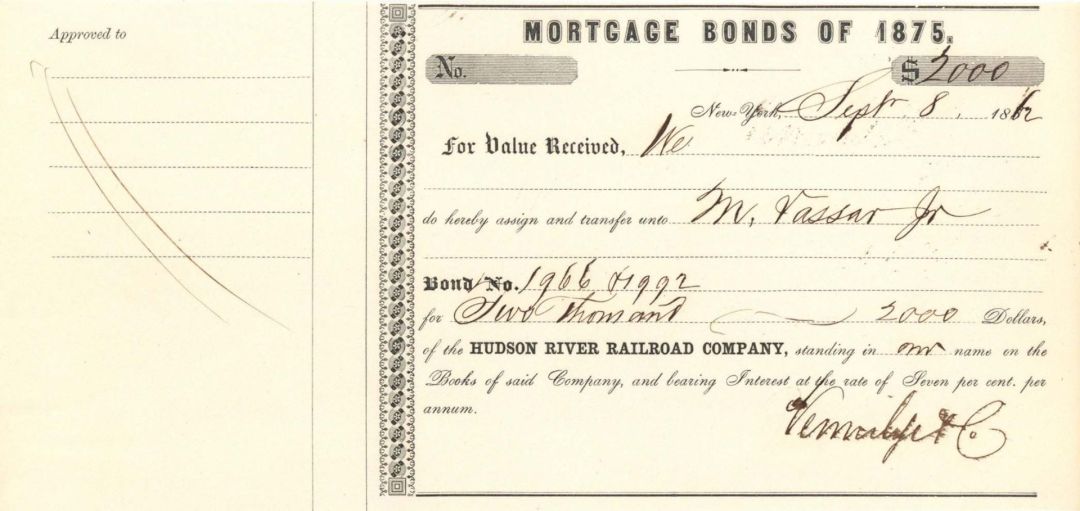 Approved to
MORTGAGE BONDS OF 1875.
No. $ 2000
New-York, Sept 8, 1862
For Value Received, We
do hereby assign and transfer unto M. Vassar Jr
Bond No. 1966 & 1992
for Two Thousand 2000 Dollars,
of the HUDSON RIVER RAILROAD COMPANY, standing in our name on the
Books of said Company, and bearing Interest at the rate of Seven per cent. per
annum.
Vermilye & Co